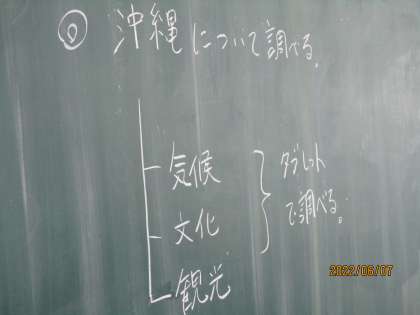 ◎ 沖縄について調べる。
気候
文化
観光
タブレット
で調べる。
2022/06/07